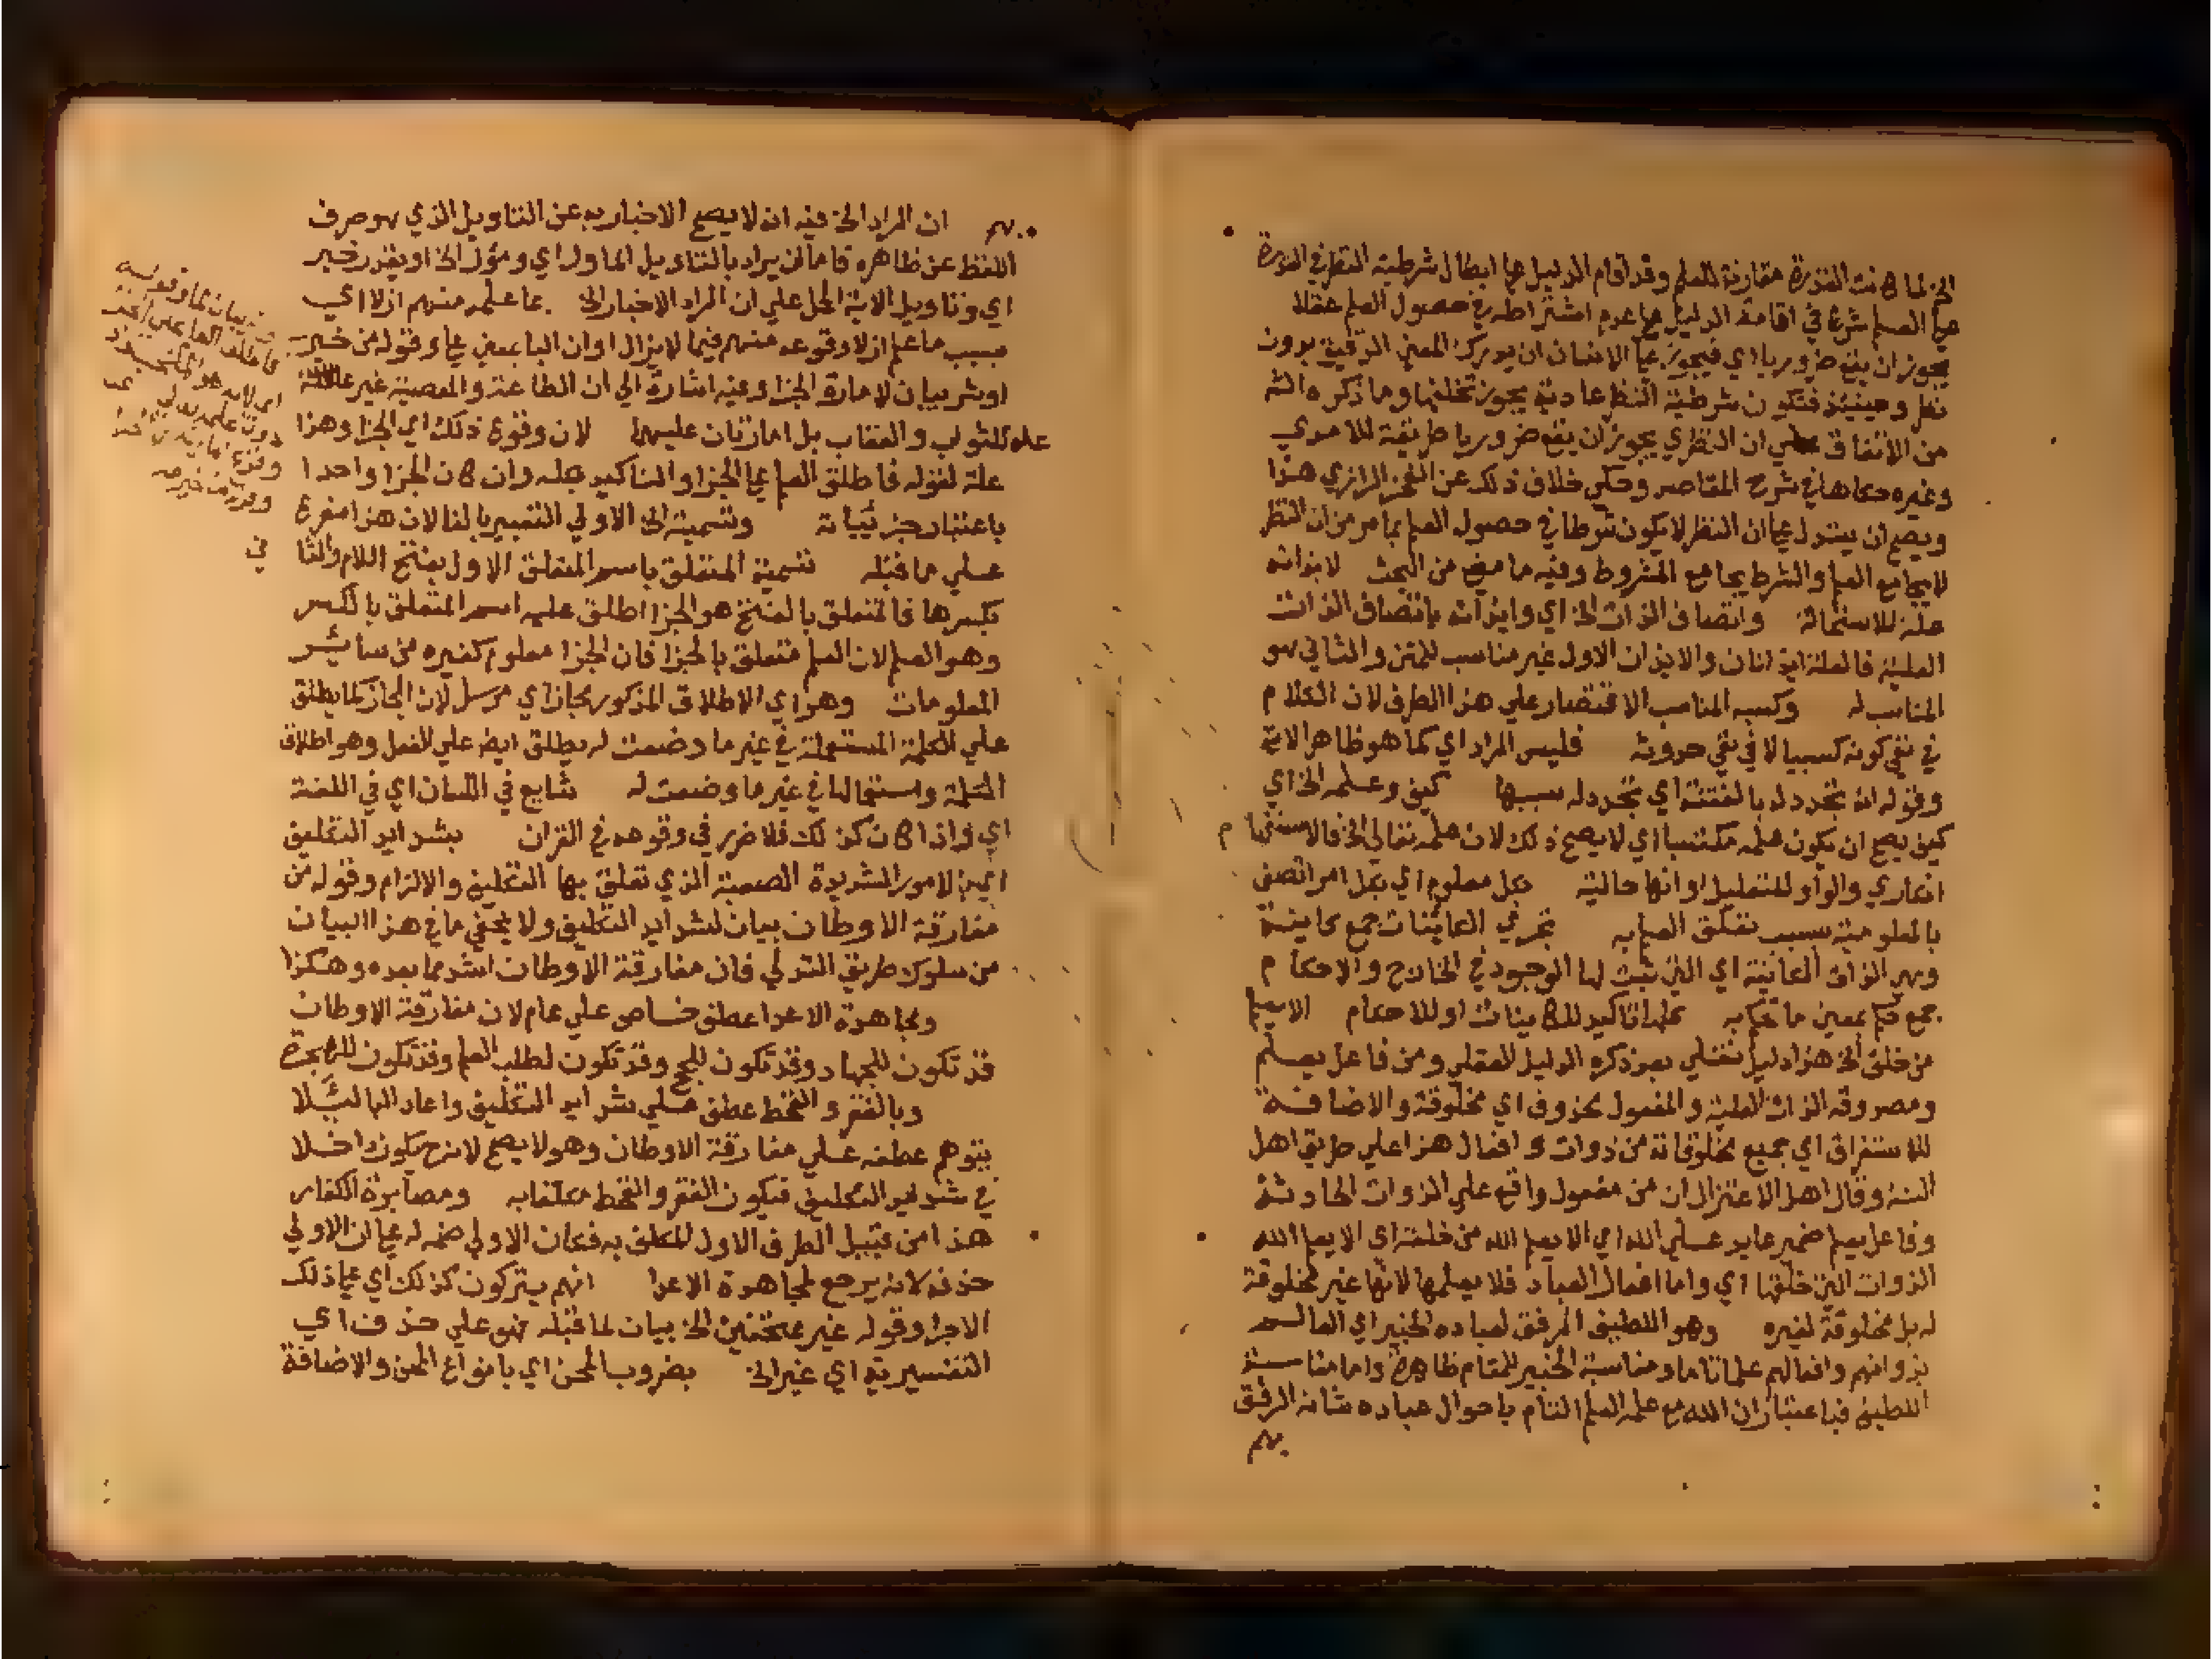 الخ لما كانت القدرة مقارنة للعلم وقد اقام الدليل على ابطال شرطية النظر في القدرة
على العلم شرع في اقامة الدليل على عدم اشتراطه في حصول العلم عقلا
يجوز ان يقع ضروريا اي فيجوز على الانسان ان يدرك المعني الدقيق بدون
نظر وحينئذ فتكون شرطية النظر عادية يجوز تخلفها وما ذكره الش
من الاتفاق علي ان النظري يجوز ان يقع ضروريا طريقة للامدي
وغيره حكاها في شرح المقاصد وحكي خلاف ذلك عن الفخر الرازي هذا
ويصح ان يستدل على ان النظر لا يكون شرطا في حصول العلم بما مر من ان النظر
لا يجامع العلم والشرط يجامع المشروط وفيه ما مضى من البحث لا بذاته
علة للاستحالة واتصاف الذات الخ اي وايذانه باتصاف الذات
العلية فالعلة ايذانان والايذان الاول غير مناسب للمتن والثاني هو
المناسب له وكسبه المناسب الاقتصار علي هذا الطرف لان الكلام
في نفي كونه كسبيا لا في نفي حدوثه فليس المراد اي كما هو ظاهر الاية
وقوله انه تجدد له بالفتنة اي تجدد له بسببها كيف وعلمه الخ اي
كيف يصح ان يكون علمه مكتسبا اي لا يصح ذلك لان علمه تعالي الخ فالاستفهام
انكاري والواو للتعليل او انها حالية بكل معلوم اي بكل امر اتصف
بالمعلومية بسبب تعلق العلم به تجري الكائنات جمع كاينة
وهي الذات الكائنة اي التي ثبت لها الوجود في الخارج والاحكام
جمع حكم بمعني ما حكم به كلها تاكيد للكاينات او للاحكام الا يعلم
من خلق الخ هذا دليل نقلي بعد ذكره الدليل العقلي ومن فاعل يعلم
ومصدوقه الذات العلية والمفعول محذوف اي مخلوقه والاضافة
للاستغراق اي جميع مخلوقاته من ذوات وافعال هذا علي طريق اهل
السنة وقال اهل الاعتزال ان من مفعول واقع علي الذوات الحادثة
وفاعل يعلم ضمير عايد علي الله اي الا يعلم الله من خلقه اي الا يعلم الله
الذوات التي خلقها اي واما افعال العباد فلا يعلمها لانها غير مخلوقة
له بل مخلوقة لغيره وهو اللطيف المرفق لعباده الخبير اي العالم
بذواتهم وافعالهم علما تاما ومناسبة الخبير للمقام ظاهرة واما مناسبة
اللطيف فباعتبار ان الله مع علمه العلم التام باحوال عباده شانه الرفق
بهم
بهم ان المراد الخ فيه ان لا يصح الاخبار به عن التاويل الذي هو صرف
اللفظ عن ظاهره فاما ان يراد بالتاويل الماول اي ومؤول الخ او يقدر خبر
اي وتاويل الاية الحمل علي ان المراد الاخبار الخ بما علمه منهم ازلا اي
بسبب ما علم ازلا وقوعه منهم فيما لا يزال او ان البا بمعني على وقوله من خير
او شر بيان لامارة الجزا وفيه اشارة الي ان الطاعة والمعصية غير
علة للثواب والعقاب بل امارتان عليهما لان وقوع ذلك اي الجزا وهذا
علة لقوله فاطلق العلم على الجزا والتاكيد بكله وان كان الجزا واحدا
باعتبار جزئياته وتسمية الخ الاولي التعبير بالفا لان هذا مفرع
علي ما قبله تسمية المتعلق باسم المتعلق الاول بفتح اللام والثاني
بكسرها فالمتعلق بالفتح هو الجزا اطلق عليه اسم المتعلق بالكسر
وهو العلم لان العلم متعلق بالجزا فان الجزا معلوم كغيره من سائر
المعلومات وهو اي الاطلاق المذكور مجاز اي مرسل لان المجاز كما يطلق
علي الكلمة المستعملة في غير ما وضعت له يطلق ايضا علي الفعل وهو اطلاق
الكلمة واستعمالها في غير ما وضعت له شايع في اللسان اي في اللغة
اي واذا كان كذلك فلا ضرر في وقوعه في القران بشدايد التكليف
اي بالامور الشديدة الصعبة الذي تعلق بها التكليف والالزام وقوله من
مفارقة الاوطان بيان لشدايد التكليف ولا يخفي ما في هذا البيان
من سلوك طريق التدلي فان مفارقة الاوطان اشد مما بعده وهكذا
ومجاهدة الاعدا عطف خاص علي عام لان مفارقة الاوطان
قد تكون للجهاد وقد تكون للحج وقد تكون لطلب العلم وقد تكون للهجرة
وبالفقر والقحط عطف علي شدايد التكليف واعاد البا ليلا
يتوهم عطفه علي مفارقة الاوطان وهو لا يصح لانه ح يكون داخلا
في شدايد التكليف فيكون الفقر والقحط مكلفا به ومصابرة الكفار
هذا من قبيل الطرف الاول المكلف به فكان الاولي ضمه له على ان الاولي
حذفه لانه يرجع لمجاهدة الاعدا انهم يتركون كذلك اي على ذلك
الاجرا وقوله غير ممتحنين الخ بيان لما قبله فهو علي حذف اي
التفسيرية اي غير الخ بضروب المحن اي بانواع المحن والاضافة